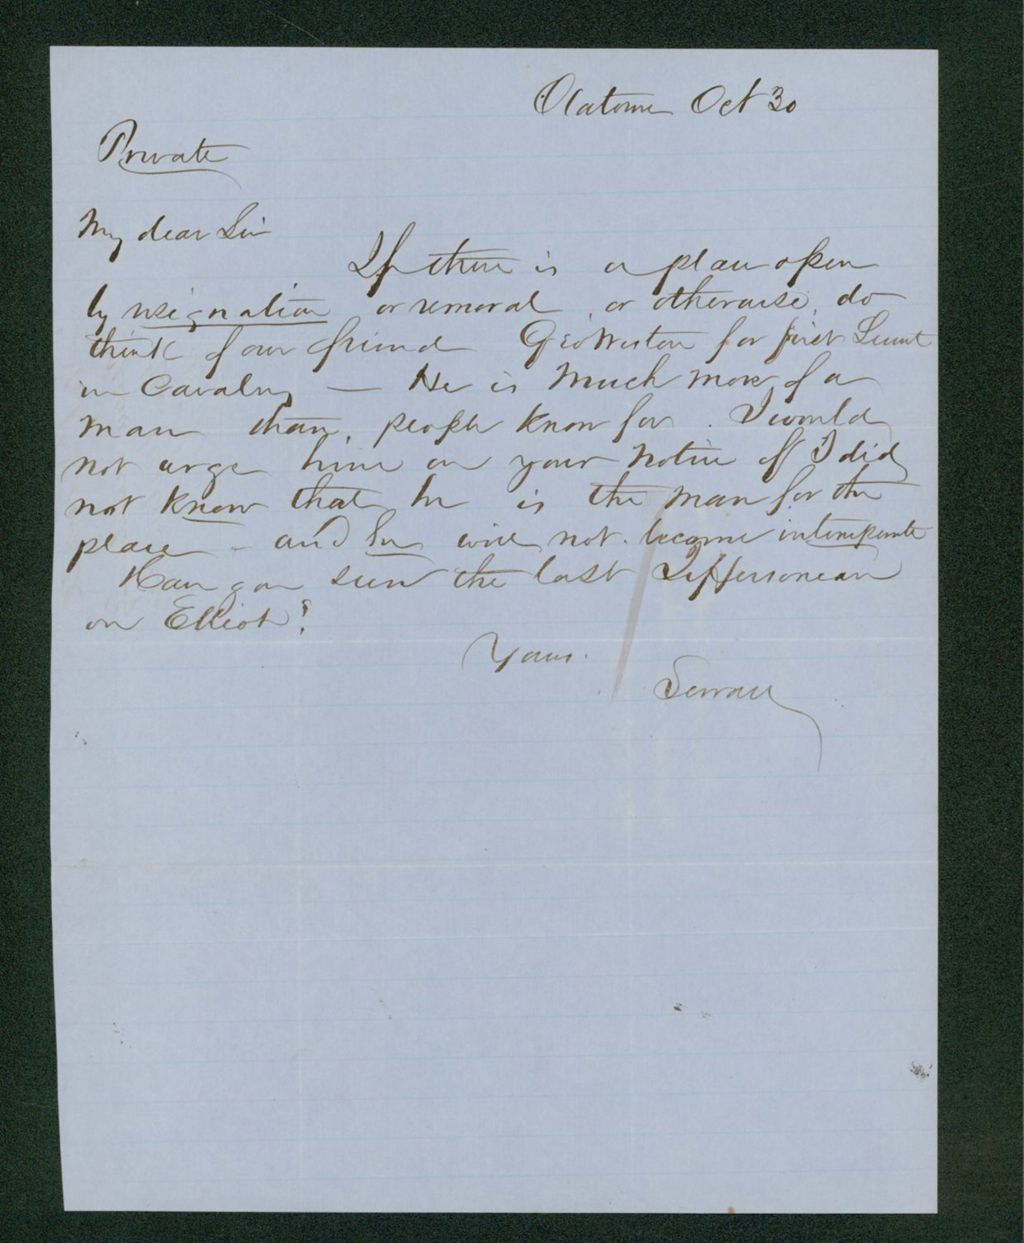 Oldtown Oct 30
Private
My dear Sir
If there is a place open
by resignation or removal, or otherwise, do
think of our friend Geo Weston for first Lieut
in Cavalry — He is much more of a
man than, people know for. I would
not urge him on your notice if I did
not know that he is the man for the
place — and he will not become intemperate
Have you seen the last Jeffersonian
on Elliot?
Yours.